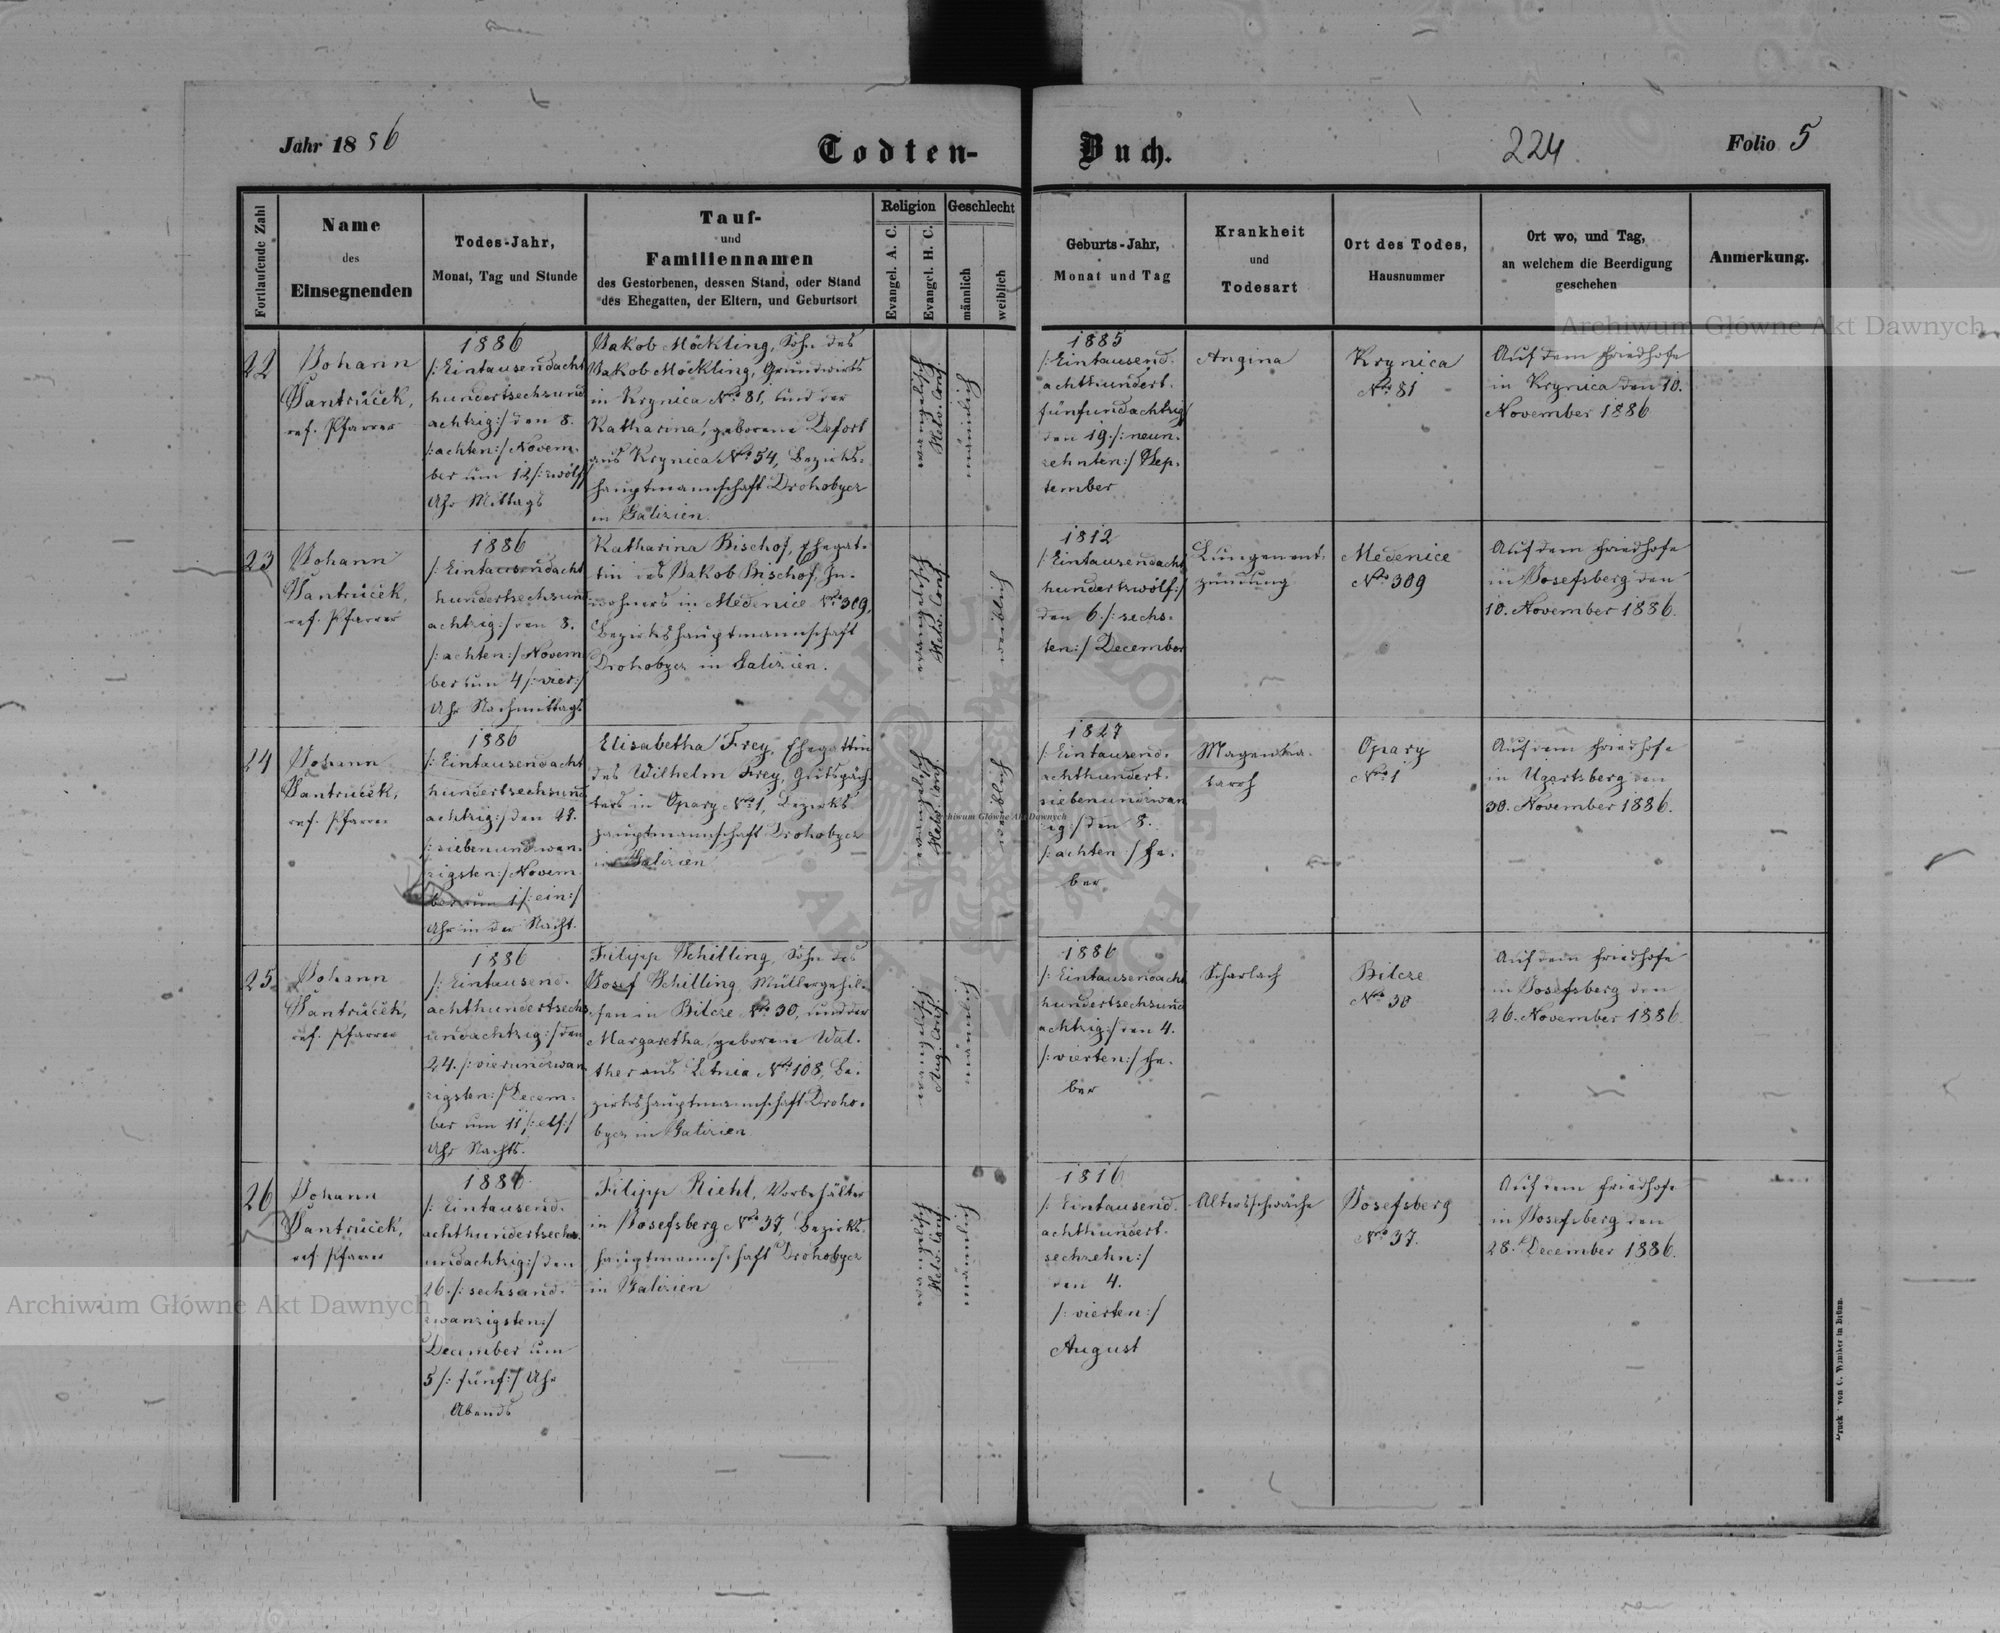 Jahr 1886
Todten-
Buch.
224
Folio 5
Fortlaufende Zahl
Name
des
Einsegnenden
Todes-Jahr,
Monat, Tag und Stunde
Tauf-
und
Familiennamen
des Gestorbenen, dessen Stand, oder Stand
des Ehegatten, der Eltern, und Geburtsort
Religion
Evangel. A. C.
Evangel. H. C.
Geschlecht
männlich
weiblich
Geburts-Jahr,
Monat und Tag
Krankheit
und
Todesart
Ort des Todes,
Hausnummer
Ort wo, und Tag,
an welchem die Beerdigung
geschehen
Anmerkung.
22
Johann
Jantrůček,
ref. Pfarrer
1886
/:Eintausendacht
hundertsechsund
achtzig:/ den 8.
/:achten:/ Novem-
ber um 12 /:zwölf:/
Uhr Mittags
Jakob Möckling, Sohn des
Jakob Möckling, Grundwirts
in Krynica Nro 81, und der
Katharina, geborene Defort
aus Krynica Nro 54, Bezirks-
hauptmannschaft Drohobycz
in Galizien.
evangelisch
Helv. Conf.
männlich
1885
/:Eintausend-
achthundert-
fünfundachtzig:/
den 19. /:neun-
zehnten:/ Sep-
tember
Angina
Krynica
Nro 81
Auf dem Friedhofe
in Krynica den 10.
November 1886
23
Johann
Jantrůček,
ref. Pfarrer
1886
/:Eintausendacht
hundertsechsund
achtzig:/ den 8.
/:achten:/ Novem
ber um 4 /:vier:/
Uhr Nachmittags
Katharina Bischof, Ehegat-
tin des Jakob Bischof, In-
wohners in Medenice Nro 309,
Bezirkshauptmannschaft
Drohobycz in Galizien.
evangelisch
Helv. Conf.
weiblich
1812
/:Eintausendacht
hundertzwölf:/
den 6. /:sechs-
ten:/ December
Lungenent-
zündung
Medenice
Nro 309
Auf dem Friedhofe
in Josefsberg den
10. November 1886.
24
Johann
Jantrůček,
ref. Pfarrer
1886
/:Eintausendacht
hundertsechsund
achtzig:/ den 27.
/:siebenundzwan-
zigsten:/ Novem-
ber um 1 /:ein:/
Uhr in der Nacht.
Elisabetha Frey, Ehegattin
des Wilhelm Frey, Gutspäch-
ters in Opary Nro 1, Bezirks
hauptmannschaft Drohobycz
in Galizien
evangelisch
Helv. Conf.
weiblich
1827
/:Eintausend-
achthundert-
siebenundzwan
zig:/ den 8.
/:achten:/
ber
Magenka-
tarrh
Opary
Nro 1
Auf dem Friedhofe
in Ugartsberg den
30. November 1886.
25
Johann
Jantrůček,
ref. Pfarrer
1886
/:Eintausend-
achthundertsechs
undachtzig:/ den
24. /:vierundzwan
zigsten:/ Decem-
ber um 11 /:elf:/
Uhr Nachts.
Filipp Schilling, Sohn des
Josef Schilling, Müllergehil-
fen in Bilcze Nro 30, und der
Margaretha, geborene Wal-
ther aus Letnia Nro 108, Be-
zirkshauptmannschaft Droho-
bycz in Galizien
evangelisch
Aug. Conf.
männlich
1886
/:Eintausendacht
hundertsechsund
achtzig:/ den 4.
/:vierten:/
ber
Scharlach
Bilcze
Nro 30
Auf dem Friedhofe
in Josefsberg den
26. November 1886.
26
Johann
Jantrůček,
ref. Pfarrer
1886
/:Eintausend-
achthundertsechs-
undachtzig:/ den
26. /:sechsund-
zwanzigsten:/
December um
5 /:fünf:/ Uhr
Abends
Filipp Riehl, Vorbehälter
in Josefsberg Nro 37, Bezirks-
hauptmannschaft Drohobycz
in Galizien
evangelisch
Helv. Conf.
männlich
1816
/:Eintausend-
achthundert-
sechzehn:/
den 4.
/:vierten:/
August
Altersschwäche
Josefsberg
Nro 37.
Auf dem Friedhofe
in Josefsberg den
28. December 1886.
Druck von C. Winiker in Brünn.
Archiwum Główne Akt Dawnych
Archiwum Główne Akt Dawnych
Archiwum Główne Akt Dawnych